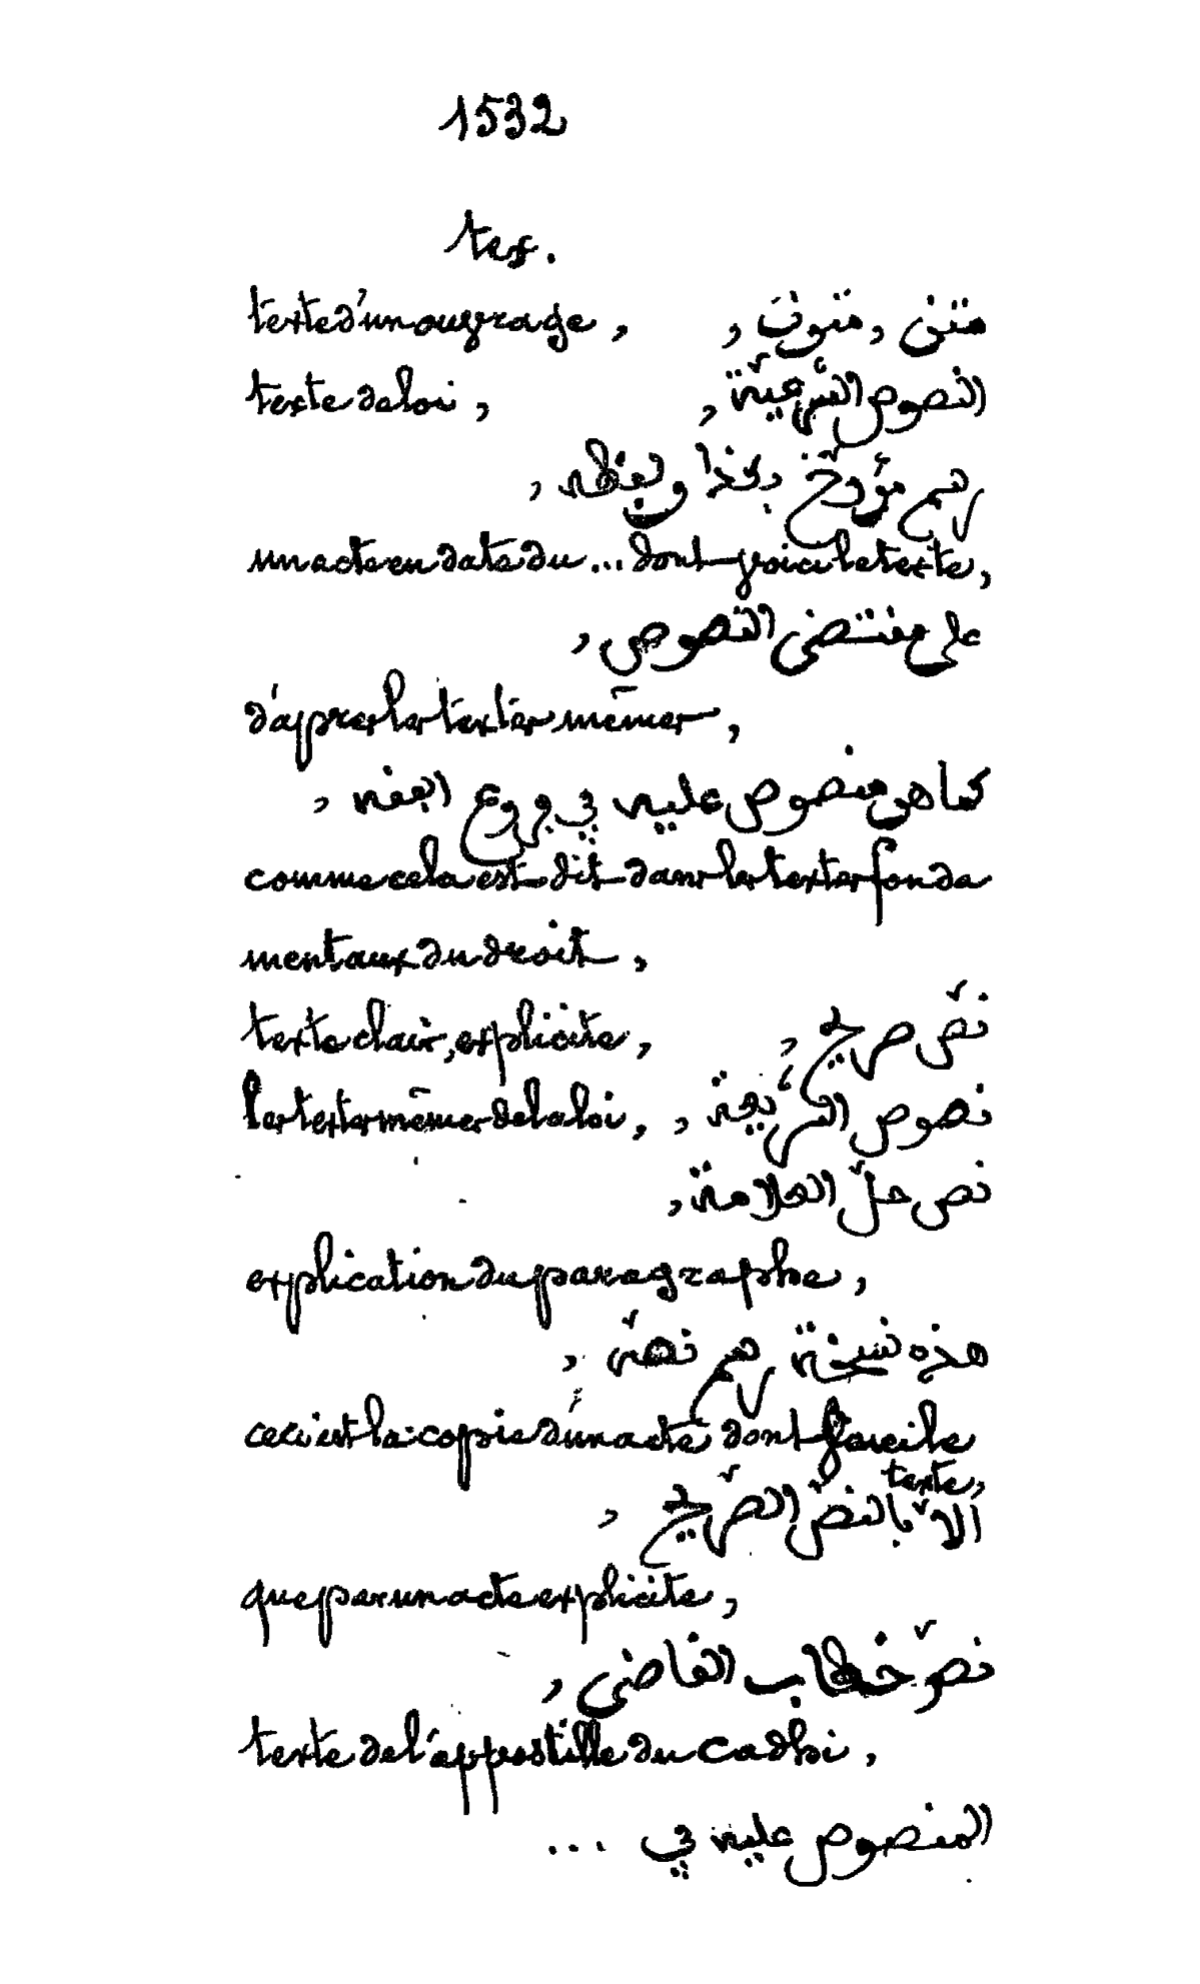 1532
tex.
texte d'un ouvrage, متن , متون ,
texte de loi, النصوص الشّرعيّة ,
رسم مؤرّخ بكذا ونصّه ,
un acte en date du ... dont voici le texte,
على مقتضى النصوص ,
d'après les textes mêmes,
كما هو منصوص عليه في فروع الفقه ,
comme cela est dit dans les textes fonda
mentaux du droit,
texte clair, explicite, نصّ صريح ,
les textes mêmes de la loi, نصوص الشّريعة ,
نص حلّ العلامة ,
explication du paragraphe,
هذه نسخة رسم نصّه ,
ceci est la copie d'un acte dont voici le
texte,
الاّ بالنصّ الصّريح ,
que par un acte explicite,
نصّ خطاب القاضى ,
texte de l'appostille du cadhi,
المنصوص عليه في ...